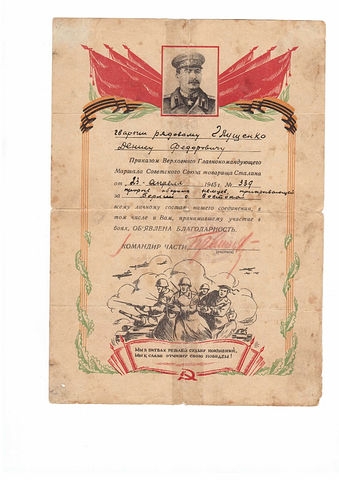 гвардии рядовому Глущенко
Денису Федоровичу
Приказом Верховного Главнокомандующего
Маршала Советского Союза товарища Сталина
от 23 апреля 1945 г. № 339
за прорыв обороны немцев, прикрывающей
Берлин с востока
всему личному составу нашего соединения, в
том числе и Вам, принимавшему участие в
боях, ОБ'ЯВЛЕНА БЛАГОДАРНОСТЬ.
КОМАНДИР ЧАСТИ
МЫ В БИТВАХ РЕШАЕМ СУДЬБУ ПОКОЛЕНИЙ,
МЫ К СЛАВЕ ОТЧИЗНУ СВОЮ ПОВЕДЕМ!